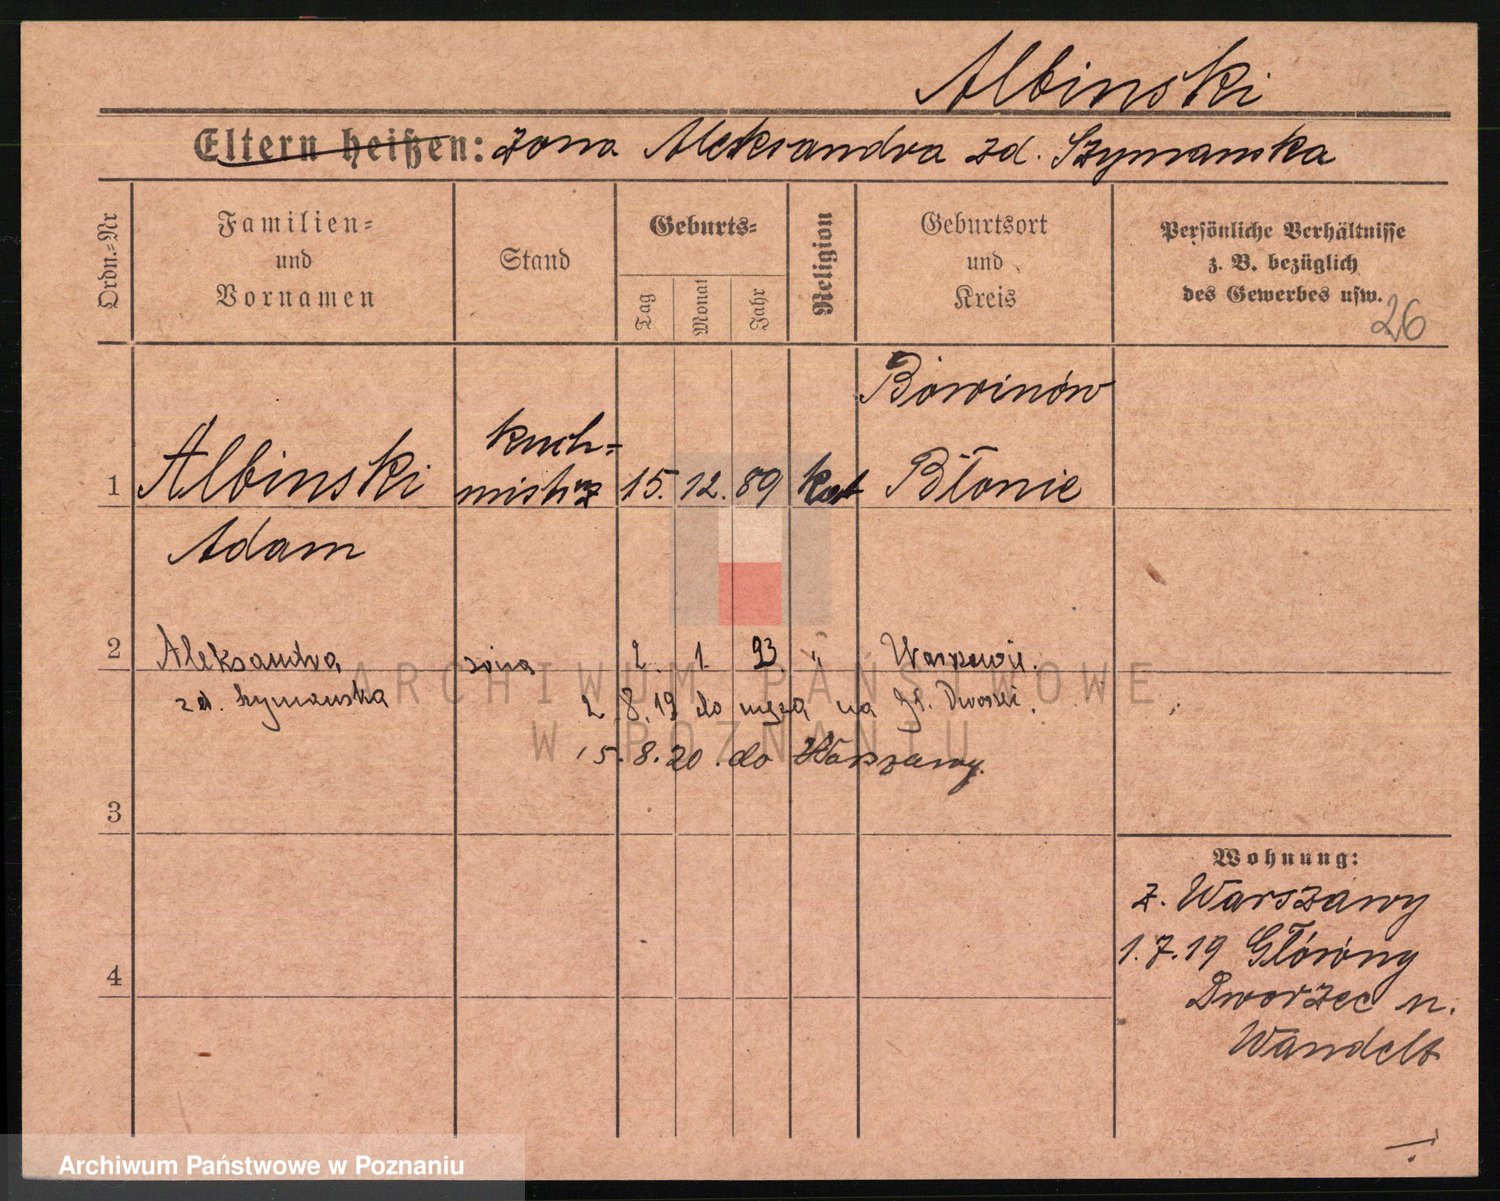 Albinski
Eltern heißen: żona Aleksandra zd. Szymanska
Ordn.=Nr
Familien=
und
Vornamen
Stand
Geburts=
Tag
Monat
Jahr
Religion
Geburtsort
und
Kreis
Persönliche Verhältnisse
z. B. bezüglich
des Gewerbes usw.
26
1
Albinski
Adam
kuch=
mistrz
15. 12. 89
kat
Błonie
2
Aleksandra
zd. Szymanska
żona
2. 1. 93. "
Warszawie.
2.8.19 do męża na Gł. Dworzec.
15.8.20. do Warszawy.
3
4
Wohnung:
z. Warszawy
1.7.19 Główny
Dworzec u.
Wandelt
ARCHIWUM PAŃSTWOWE
W POZNANIU
Archiwum Państwowe w Poznaniu